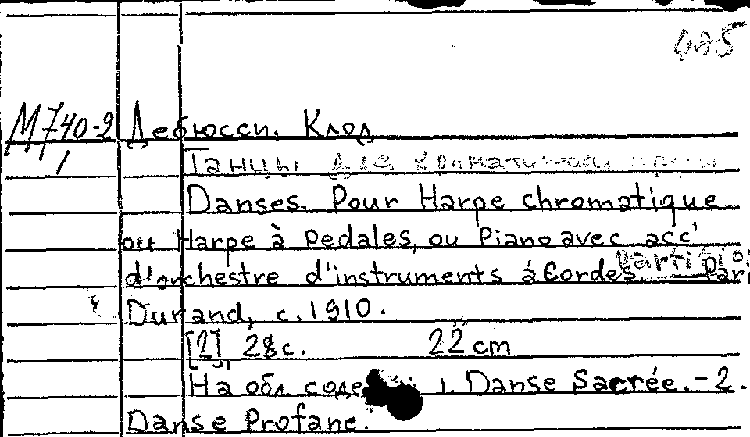 485
М740-2 Дебюсси. Клод
1
Танцы для хроматической арфы
Danses. Pour Harpe chromatique
ou Harpe à Pedales, ou Piano avec acc'
d'orchestre d'instruments à Cordes. Partition Pari
Durand, c. 1910.
[2] 28 с. 22 cm
На обл. соде 1. Danse Sacrée. - 2.
Danse Profane.